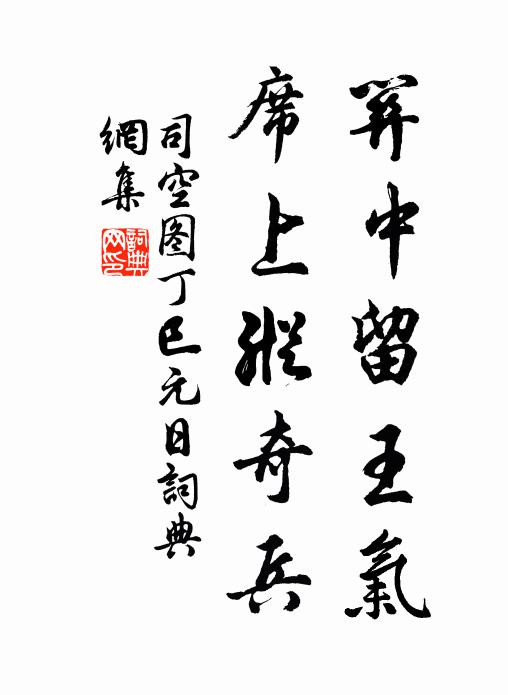 筭中留王氣
席上縱奇兵
司空图丁巳元日詞典
網集
詞典
网印